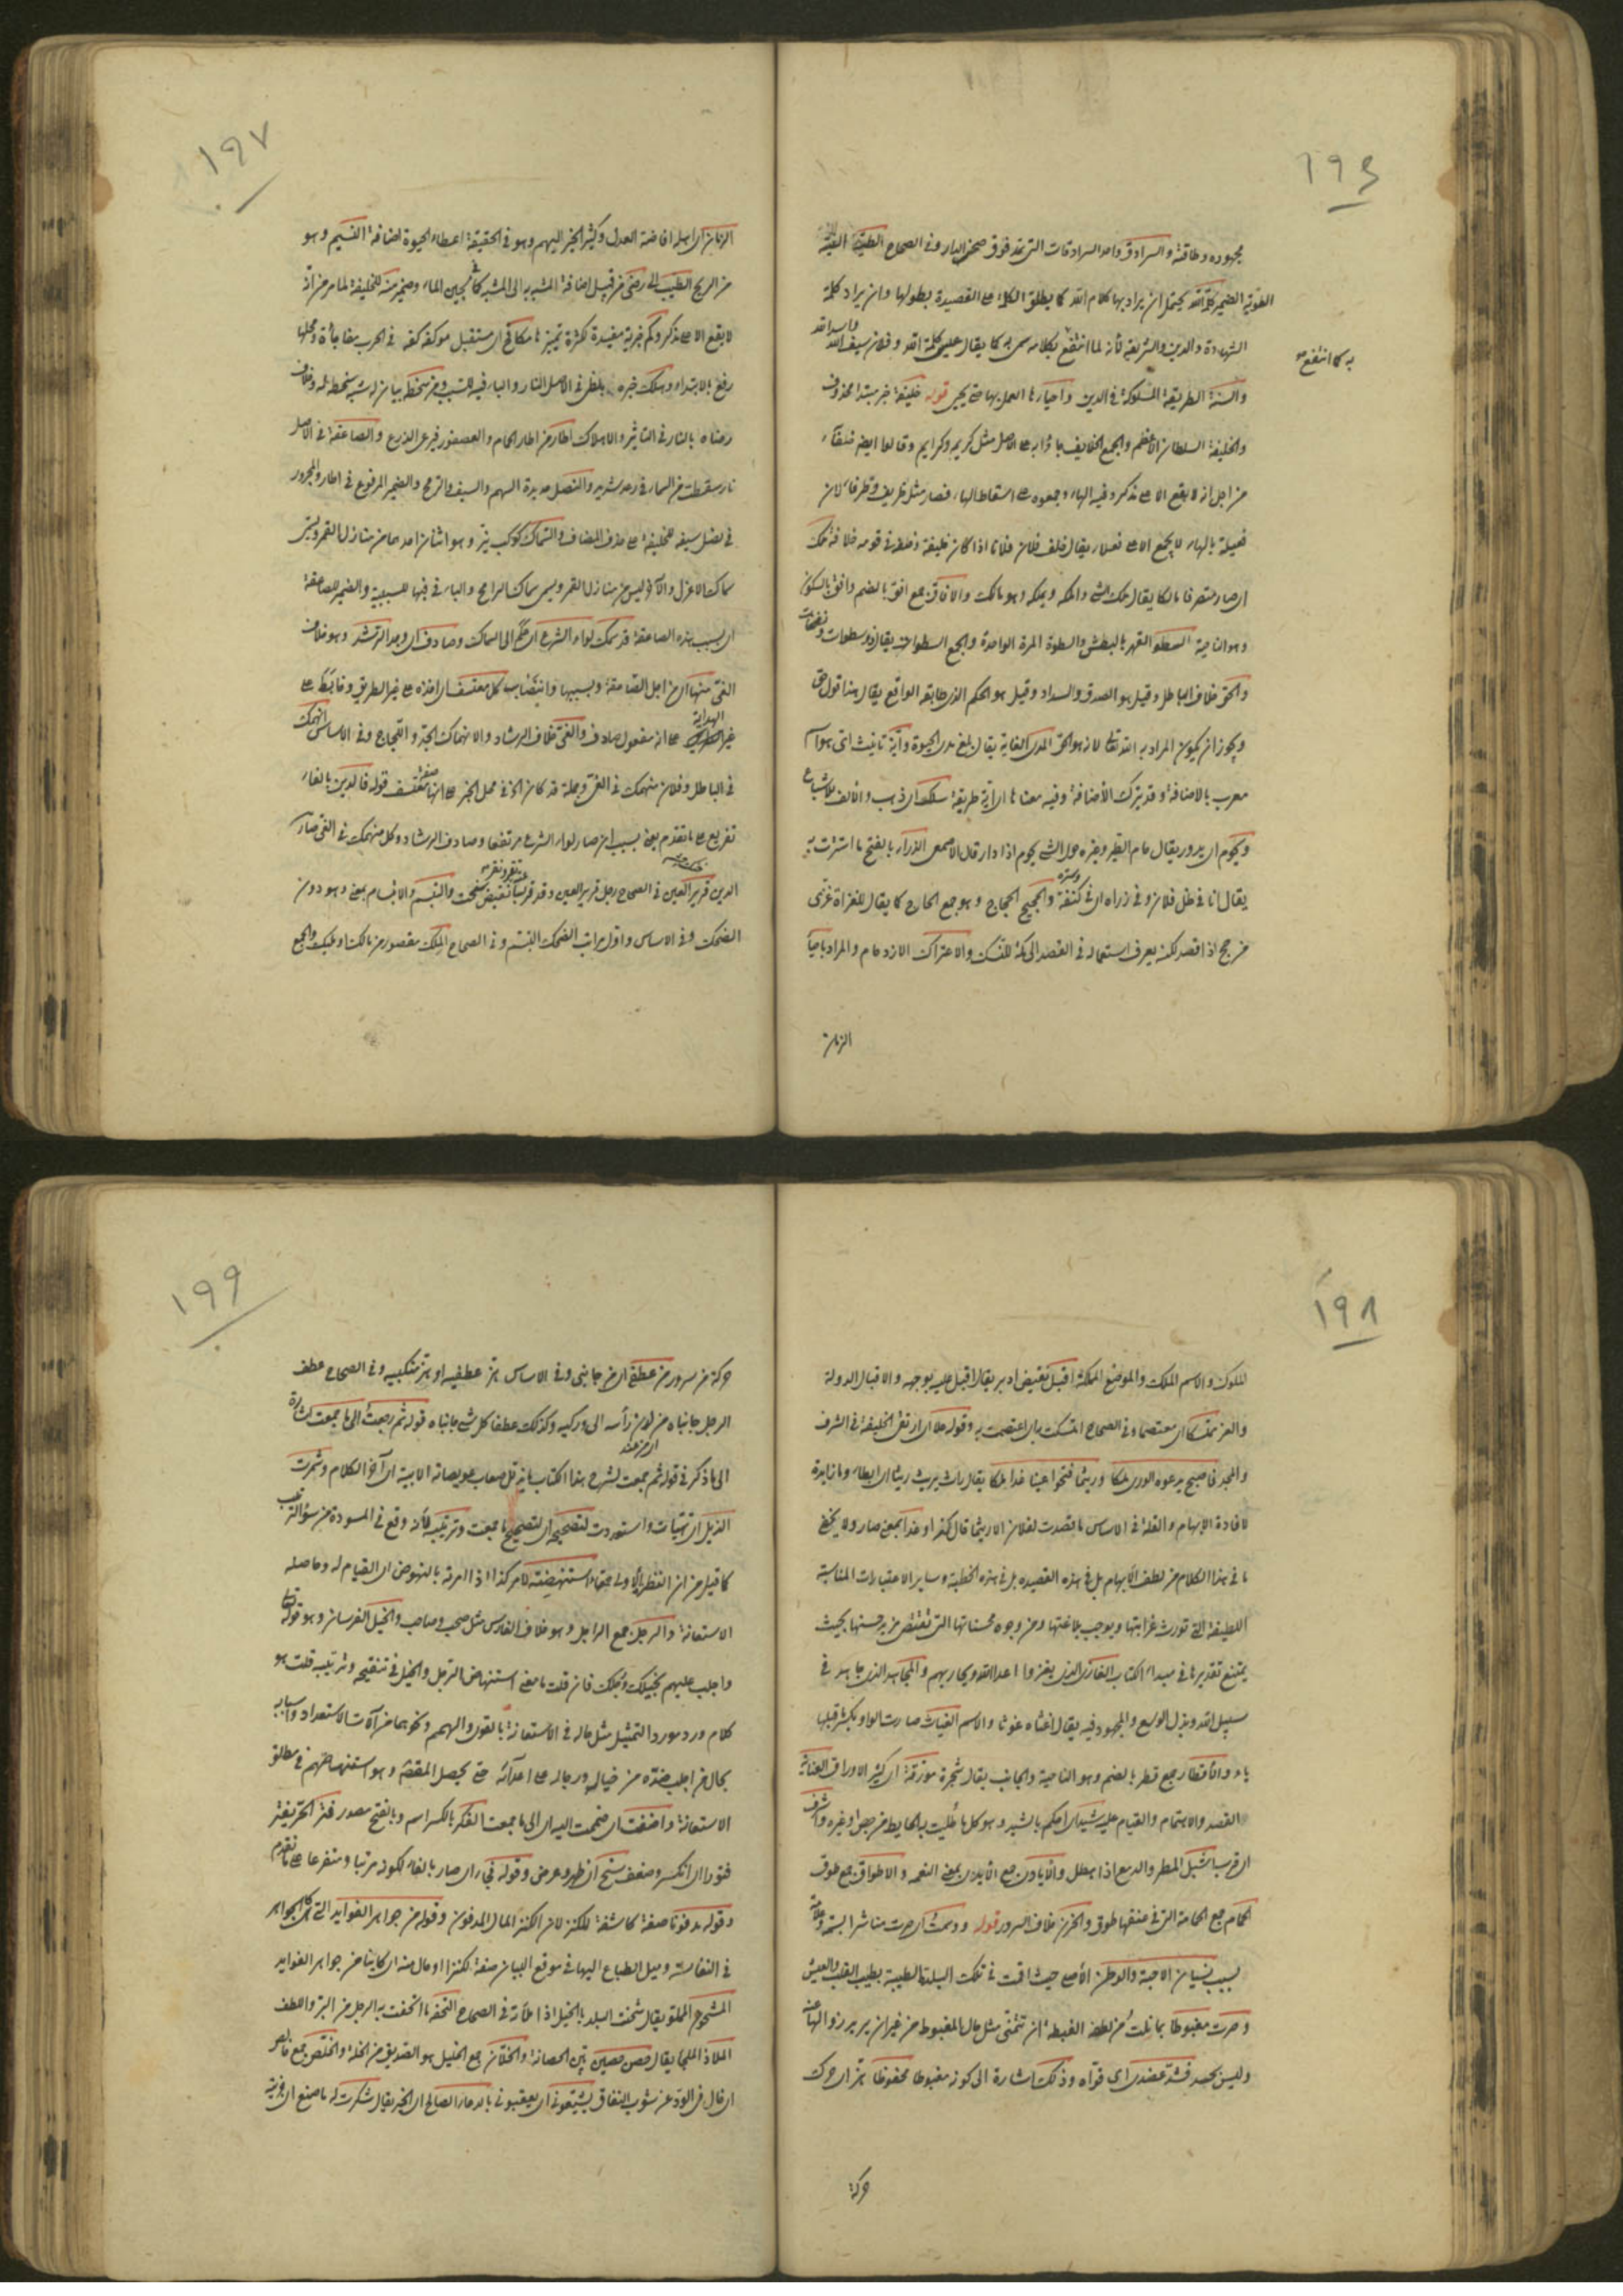 ١٩٦
مجهوده وطاقته والسرادق واحد السرادقات التى تمد فوق صحن الدار وفى الصحاح الطيّة النية
القوية الضمير كلمة الله يحتمل ان يراد بها كلام الله كما يطلق الكلمة على القصيدة بطولها وان يراد كلمة
الشهادة والدين والشريعة لأنه لما انتفع بكلامه سمى به كما يقال عليه كلمة الله وفلان سيف الله واسد الله
به كما انتفع
والسنة الطريقة المسلوكة فى الدين واحياؤها العمل بها حتى يحيى قوله خليفة خبر مبتدا محذوف
والخليفة السلطان الأعظم والجمع الخلايف جاؤا به على الاصل مثل كريمة وكرايم وقالوا ايضا خلفاء
من اجل انه لا يقع الا على مذكر وفيه الهاء جمعوه على اسقاط الهاء فصار مثل ظريف وظرفاء لان
فعيلة بالهاء لا يجمع الا على فعلاء يقال خلف فلان فلانا اذا كان خليفة وخلفه فى قومه خلافة ملك
اى صار متصرفا مالكا يقال ملك الشئ والملكه ويملكه وهو مالك والآفاق جمع افق بالضم وافق بالسكون
وهو الناحية السطو القهر بالبطش والسطوة المرة الواحدة والجمع السطوات يقال ذو سطوات ونفحات
والحق خلاف الباطل وقيل هو الصدق والسداد وقيل هو الحكم الذى طابقه الواقع يقال هذا قول حق
ويجوز ان يكون المراد به الله تعالى لانه هو الحق المدى الغاية يقال بلغ مدى الحيوة وآية تانيث اى هو اسم
معرب بالاضافة وقد يترك الأضافة وفيه معناها اى اية طريقة سلك اى ذهب والالف للاشباع
ويحوم اى يدور يقال حام الطير وغيره حول الشئ يحوم اذا دار قال الاصمعى الذرآء بالفتح ما استترت به
يقال انا فى ظل فلان وفى ذراه اى فى كنفه وستره والحجيج الحجاج وهو جمع الحاج كما يقال للغزاة غزى
من حج اذا قصد لكنه يعرف استعماله فى القصد الى مكة للنسك والاعتراك الازدحام والمراد باحياء
الزمان
١٩٧
الزمان اى اهله افاضة العدل وكثير الخير اليهم وهو فى الحقيقة اعطاء الحيوة اضافة النسيم وهو
من الريح الطيب الى رضى من قبيل اضافة المشبه به الى المشبه كما فى لجين الماء وضمير منه للخليفة لما مر من انه
لا يقع الا على مذكر وكم خبرية مفيدة لكثرة تميزها مكافح اى مستقبل موكفه كفه فى الحرب مفاجأة ومحلها
رفع بالابتداء وهلك خبره بلظى فى الاصل النار والباء فيه للسبب ومن سخط بيان له شبه سخطه له وخلاف
رضاه بالنار فى التاثير والاهلاك اطار من اطار الحمام والعصفور فرعى الذرع والصاعقة فى الاصل
نار سقطت من السماء فى رعد شديد والنصل حديدة السهم والسيف والرمح والضمير المرفوع فى اطار والمجرور
فى نصل سيفه للخليفة على حذف المضاف والسّماك كوكب نيّر وهو اثنان احدهما من منازل القمر ويسمى
سماك الاعزل والآخر ليس من منازل القمر ويسمى سماك الرامح والباء فى فيها للسببية والضمير للصاعقة
اى بسبب هذه الصاعقة قد سمك لواء الشرع اى علم الى السماك وصادف اى وجد الرشد وهو خلاف
الغى منها اى من اجل الصاعقة وبسببها وانتصاب كل معتسف اى اخذه على غير الطريق وقائمك على
غير الهداية على انه مفعول صادف والغى خلاف الرشاد والانهماك الجد واللجاج وفى الاساس انهمك
فى الباطل وفلان منهمك فى الغى وجملة قد كان آخر فى محل الجر على انها صفة معتسف قوله فالدين بالفاء
تفريع على ما تقدم يعنى بسبب ان صار لواء الشرع مرتفعا وصادف الرشاد وكل منهمك فى الغى صار
الدين قرير العين فى الصحاح رجل قرير العين وقد قرت عينه تقر وتقر نقيض سخنت والتبسم والابتسام بمعنى وهو دون
الضحك وفى الاساس واول مراتب الضحك التبسم وفى الصحاح الملك مقصور من مالك او مليك والجمع
١٩٨
الملوك والاسم الملك والموضع المملكة اقبل نقيض ادبر يقال اقبل عليه بوجهه والاقبال الدولة
والعز متمسكا اى معتصما وفى الصحاح امتسكت به اى اعتصمت به وقوله علا اى ارتقى الخليفة فى الشرف
والمجد فاصبح يدعوه الورى ملكا وريثما فتحوا عينا غدا ملكا يقال راث يريث ريثا اى ابطاء وما زايدة
لافادة الابهام والقلة فى الاساس ما قعدت لفلان الا ريثما قال كذا وغدا بمعنى صار ولا يخفى
ما فى هذا الكلام من لطف الأيهام بل فى هذه القصيده بل فى هذه الخطبة وساير الاعتبارات المناسبة
اللطيفة التى تورث غرابتها ويوجب بلاغتها ومن وجوه محسناتها التى تقتضى مزيد حسنها بحيث
يمتنع تقديرها فى ميداء اكتاب الغازى الذى يغزوا اعداالله ويحاربهم والمجاهد الذى جاهد فى
سبيل الله وبذل الوسع والمجهود فيه يقال اغثاه غوثا والاسم الغياث صارت الواو بكسرة قبلها
ياء والأقطار جمع قطر بالضم وهو الناحية والجانب يقال شجرة مورقة اى كثير الاوراق العناية
القصد والاهتمام والقيام عليه شيد اى احكم بالشيد وهو كل ما طليت به الحايط من جص وغيره واشرف
اى قرب اسبل المطر والدمع اذا هطل والأيادى جمع الايدى بمعنى النعمة والاطواق جمع طوق
الحمام جمع الحمامة التى فى عنقها طوق والحزن خلاف السرور قوله ودمت اى صرت مناشر البسمة وعلامة
بسبب نسيان الاحبة والوطن الأصلى حيث اقمت فى تلك البلدة الطيبة بطيب القلب والعيش
وصرت مغبوطا بما نلت من لطفه الغبطة ان تتمنى مثل حال المغبوط من غير ان يريد زوالها عنه
وليس بحسد فشد عضدى اى قواه وذلك اشارة الى كونه مغبوطا محفوظا هز اى حرك
حركة
١٩٩
حركة من سرور من عطفى اى من جانبى وفى الاساس هز عطفيه او هز منكبيه وفى الصحاح عطف
الرجل جانباه من لدن رأسه الى وركيه وكذلك عطفا كل شئ جانباه قوله ثم رجعت الى ما جمعت اشارة
الى ما ذكر فى قوله ثم جمعت لشرح هذا الكتاب ما يذلل صعاب عويصاته الابية اى آخر الكلام وشمرت
الذيل اى تهيّات واستعددت لتصحيحه اى لتصحيح ما جمعت وترتيبه كأنه وقع فى المسودة من سوء الترتيب
كما قيل من ان النظر الأولى حمقاء استنهضته لامر كذا اذا امرته بالنهوض اى القيام له وحاصله
الاستعانة والرجل جمع الراجل وهو خلاف الفارس مثل صحب وصاحب والخيل الفرسان وهو قوله تعالى
واجلب عليهم بخيلك ورجلك فان قلت ما معنى استنهاض الرجل والخيل فى تنقيحه وترتيبه قلت هو
كلام ورد مورد التمثيل مثل حاله فى الاستعانة بالقوى والهمم ونحوهما من آلات الاستعداد واسبابه
بحال من اجلب ضده من خياله ورجاله على اعدائه حتى يحصل المقصد وهو استنهاضهم فى مطلق
الاستعانة واضفت اى ضممت اليه اى الى ما جمعت الفكر بالكسر اسم وبالفتح مصدر فتر الحر يفتر
فتورا اى انكسر وضعف سنح اى ظهر وعرض وقوله فجاء اى صار بالفاء لكونه مرتبا ومتفرعا على ما تقدم
وقوله مدفونا صفة كاشفة للكنز لان الكنز المال المدفون وقوله من جواهر الفوايد التى كالجواهر
فى النفاسة وميل الطباع اليها فى موقع البيان صفة لكنزا او حال منه اى كاينا من جواهر الفوايد
المشحون المملو يقال شحنت البلد بالخيل اذا ملأته فى الصحاح التحفة ما اتحفت به الرجل من البر واللطف
الملاذ الملجا يقال حصن حصين بين الحصانة والخلان جمع الخليل هو الصديق من الخلة والخلّص جمع خالص
اى خال فى الود عن شوب النفاق يشيعونى اى يعقبونى بالدعاء الصالح اى الخير يقال شكرت له ما صنع اى جزيته